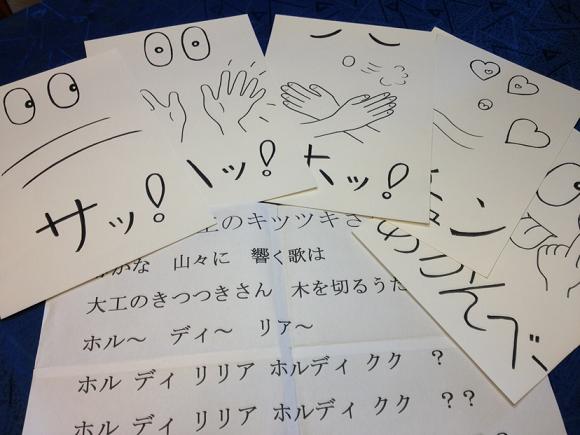 サッ！
ハッ！
ホッ！
ュン
あっかんべ
工のキツツキさ
かな　山々に　響く歌は
大工のきつつきさん　木を切るうた
ホル～　ディ～　リア～
ホル ディ リリア ホルディ クク　？
ホル ディ リリア ホルディ クク　？？